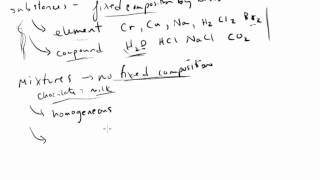 substances - fixed composition by
element Cr, Ca, Na, H2 Cl2 Br2
compound H2O HCl NaCl CO2
Mixtures → no fixed compositions
chocolate milk
homogeneous